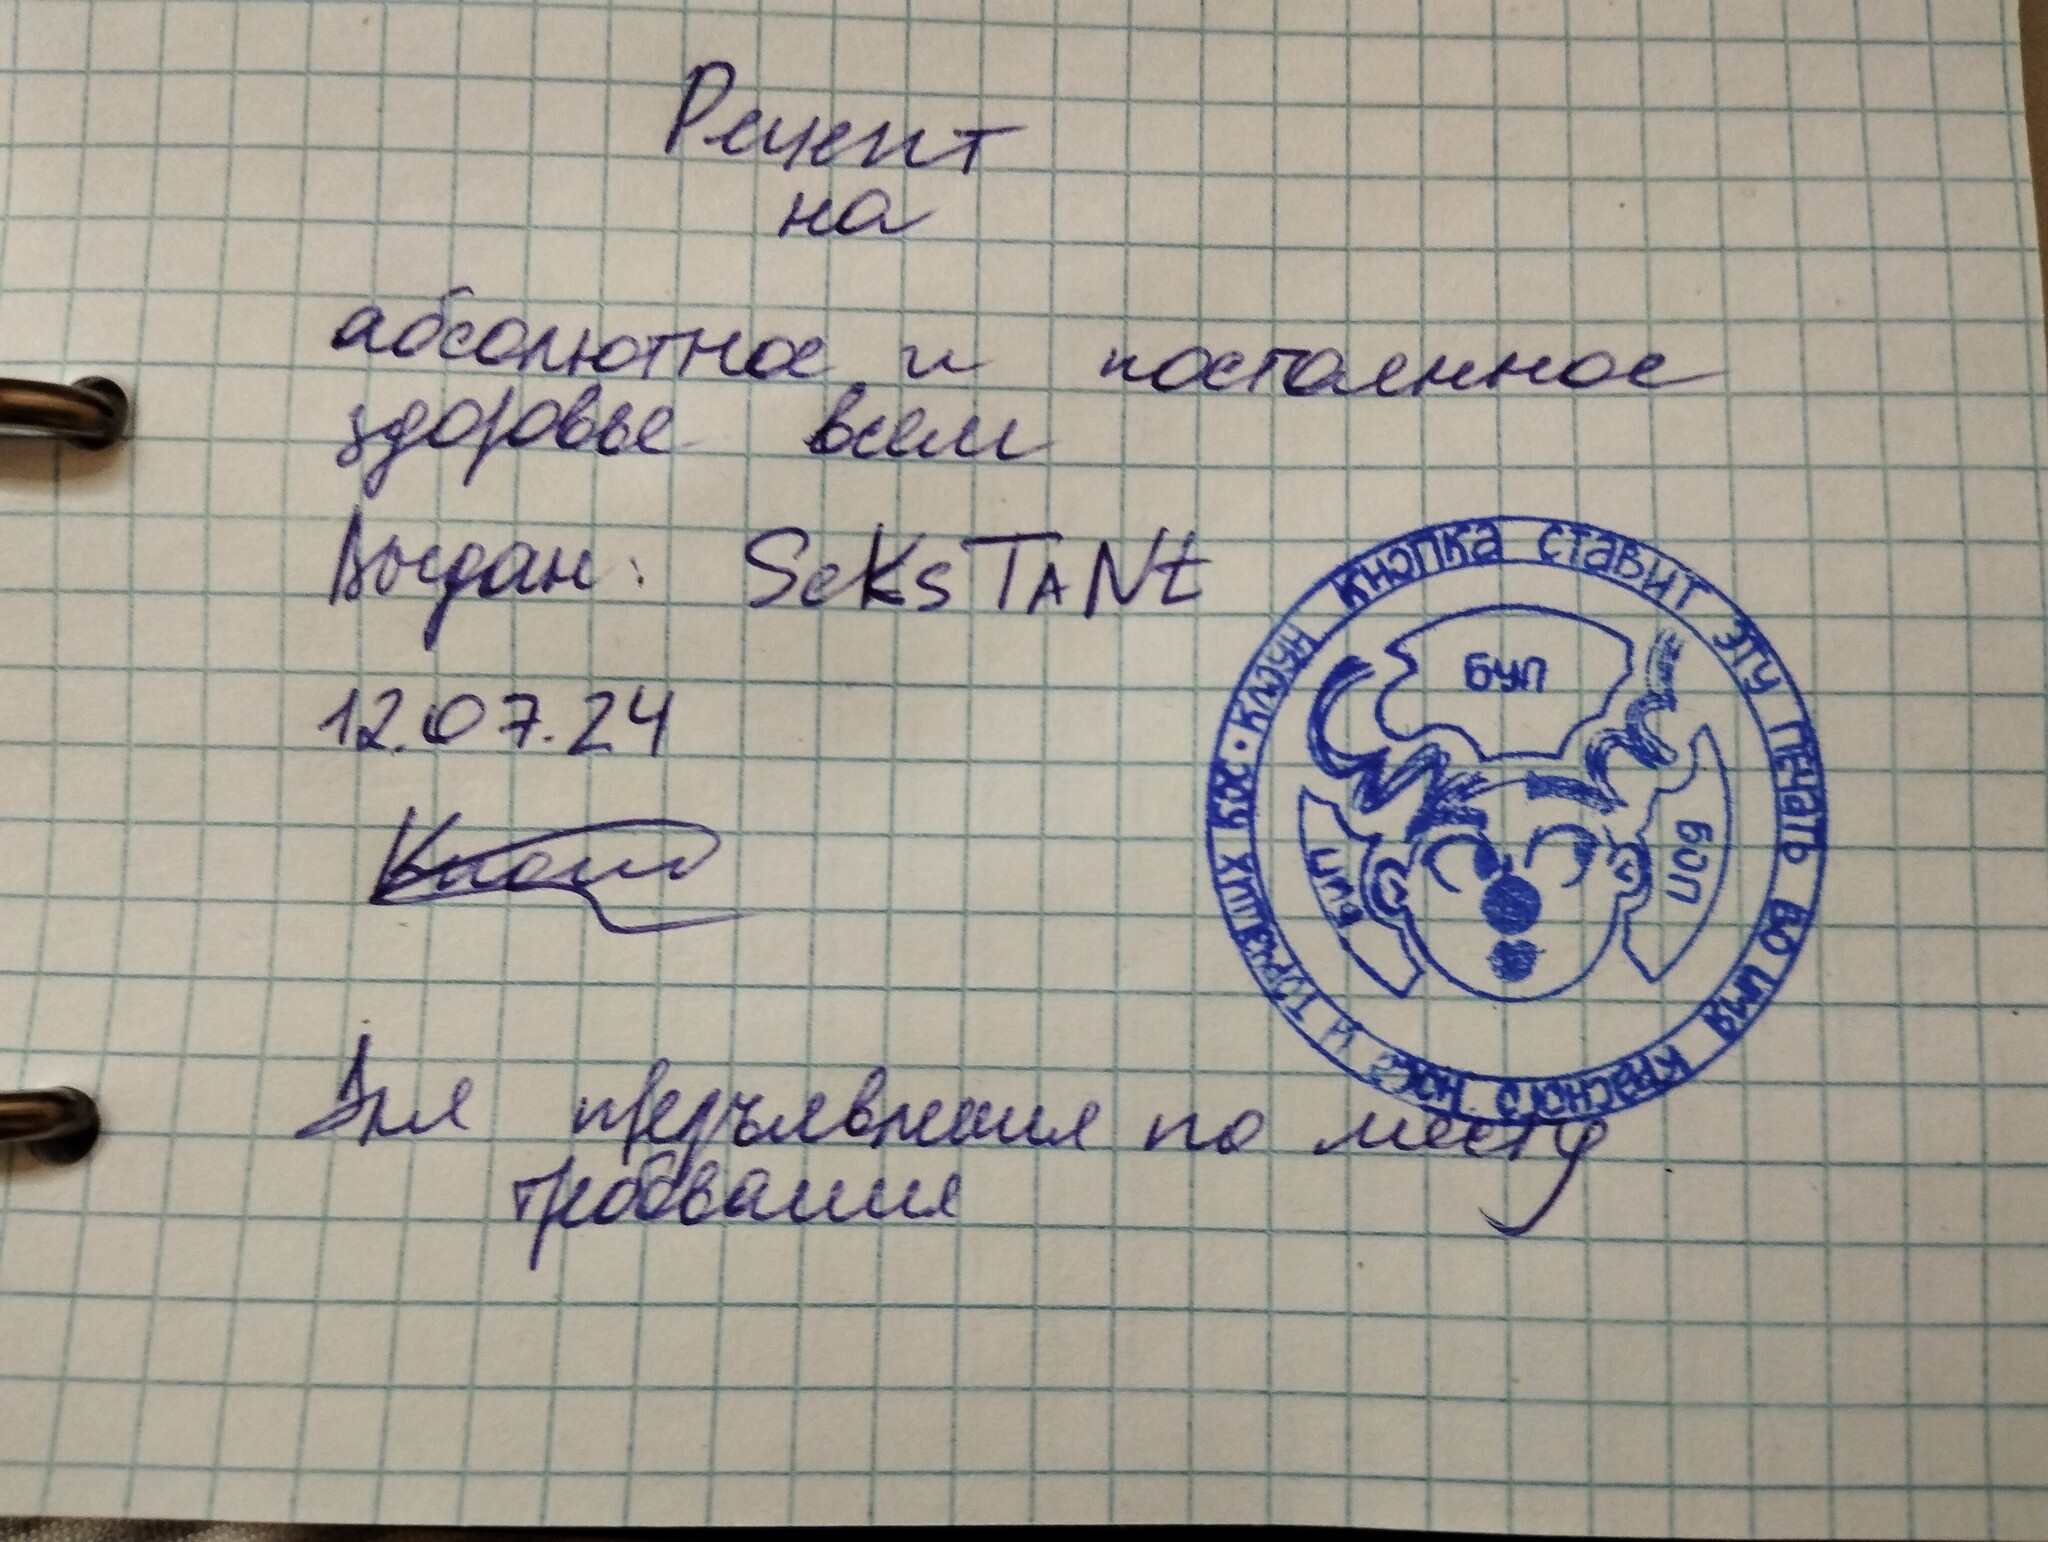 Рецепт
на
абсолютное и постоянное
здоровье всем
Выдан: SeKsTANt
12.07.24
Для предъявления по месту
требования
КЛОУН КНОПКА СТАВИТ ЭТУ ПЕЧАТЬ ВО ИМЯ КРАСНОГО НОСА И ТОРЧАЩИХ КОС •
БУП
БИП
БОП